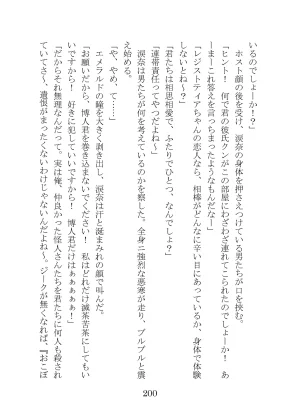 いるのでしょーか！？」
　ホスト顔の後を受け、涙奈の身体を押さえつけている男たちが口を挟む。
「ヒント！　何で君の彼氏クンがこの部屋にわざわざ連れてこられたのでしょーか！　あ
ーまーこれ答えを言っちまったようなもんだなー」
「レジスティアちゃんの恋人なら、相棒がどんなに辛い目にあっているか、身体で体験
しないとね～？」
「君たちは相思相愛で、ふたりでひとつ、なんでしょ？」
「連帯責任ってやつだよね」
　涙奈は男たちが何を考えているのかを察した。全身に強烈な悪寒が走り、ブルブルと震
え始める。
「や、やめ、て……」
　エメラルドの瞳を大きく剥き出し、涙奈は汗と涎まみれの顔で叫んだ。
「お願いだから、博人君を巻き込まないでください！　私はどれだけ滅茶苦茶にしてもい
いですから！　好きに犯していいですから！　博人君だけはぁぁぁぁ！」
「だからそれ無理なんだって。実は俺、仲良かった怪人さんたちを君たちに何人も殺され
ていてさ～、遺恨がまったくないわけじゃないんだよね～。ジークが無くなれば、『おこぼ
200